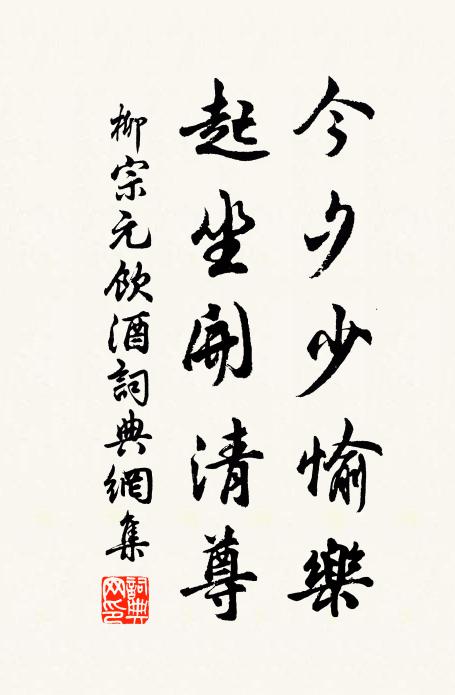 今夕少愉樂
起坐開清尊
柳宗元飲酒詞典網集
詞典網印